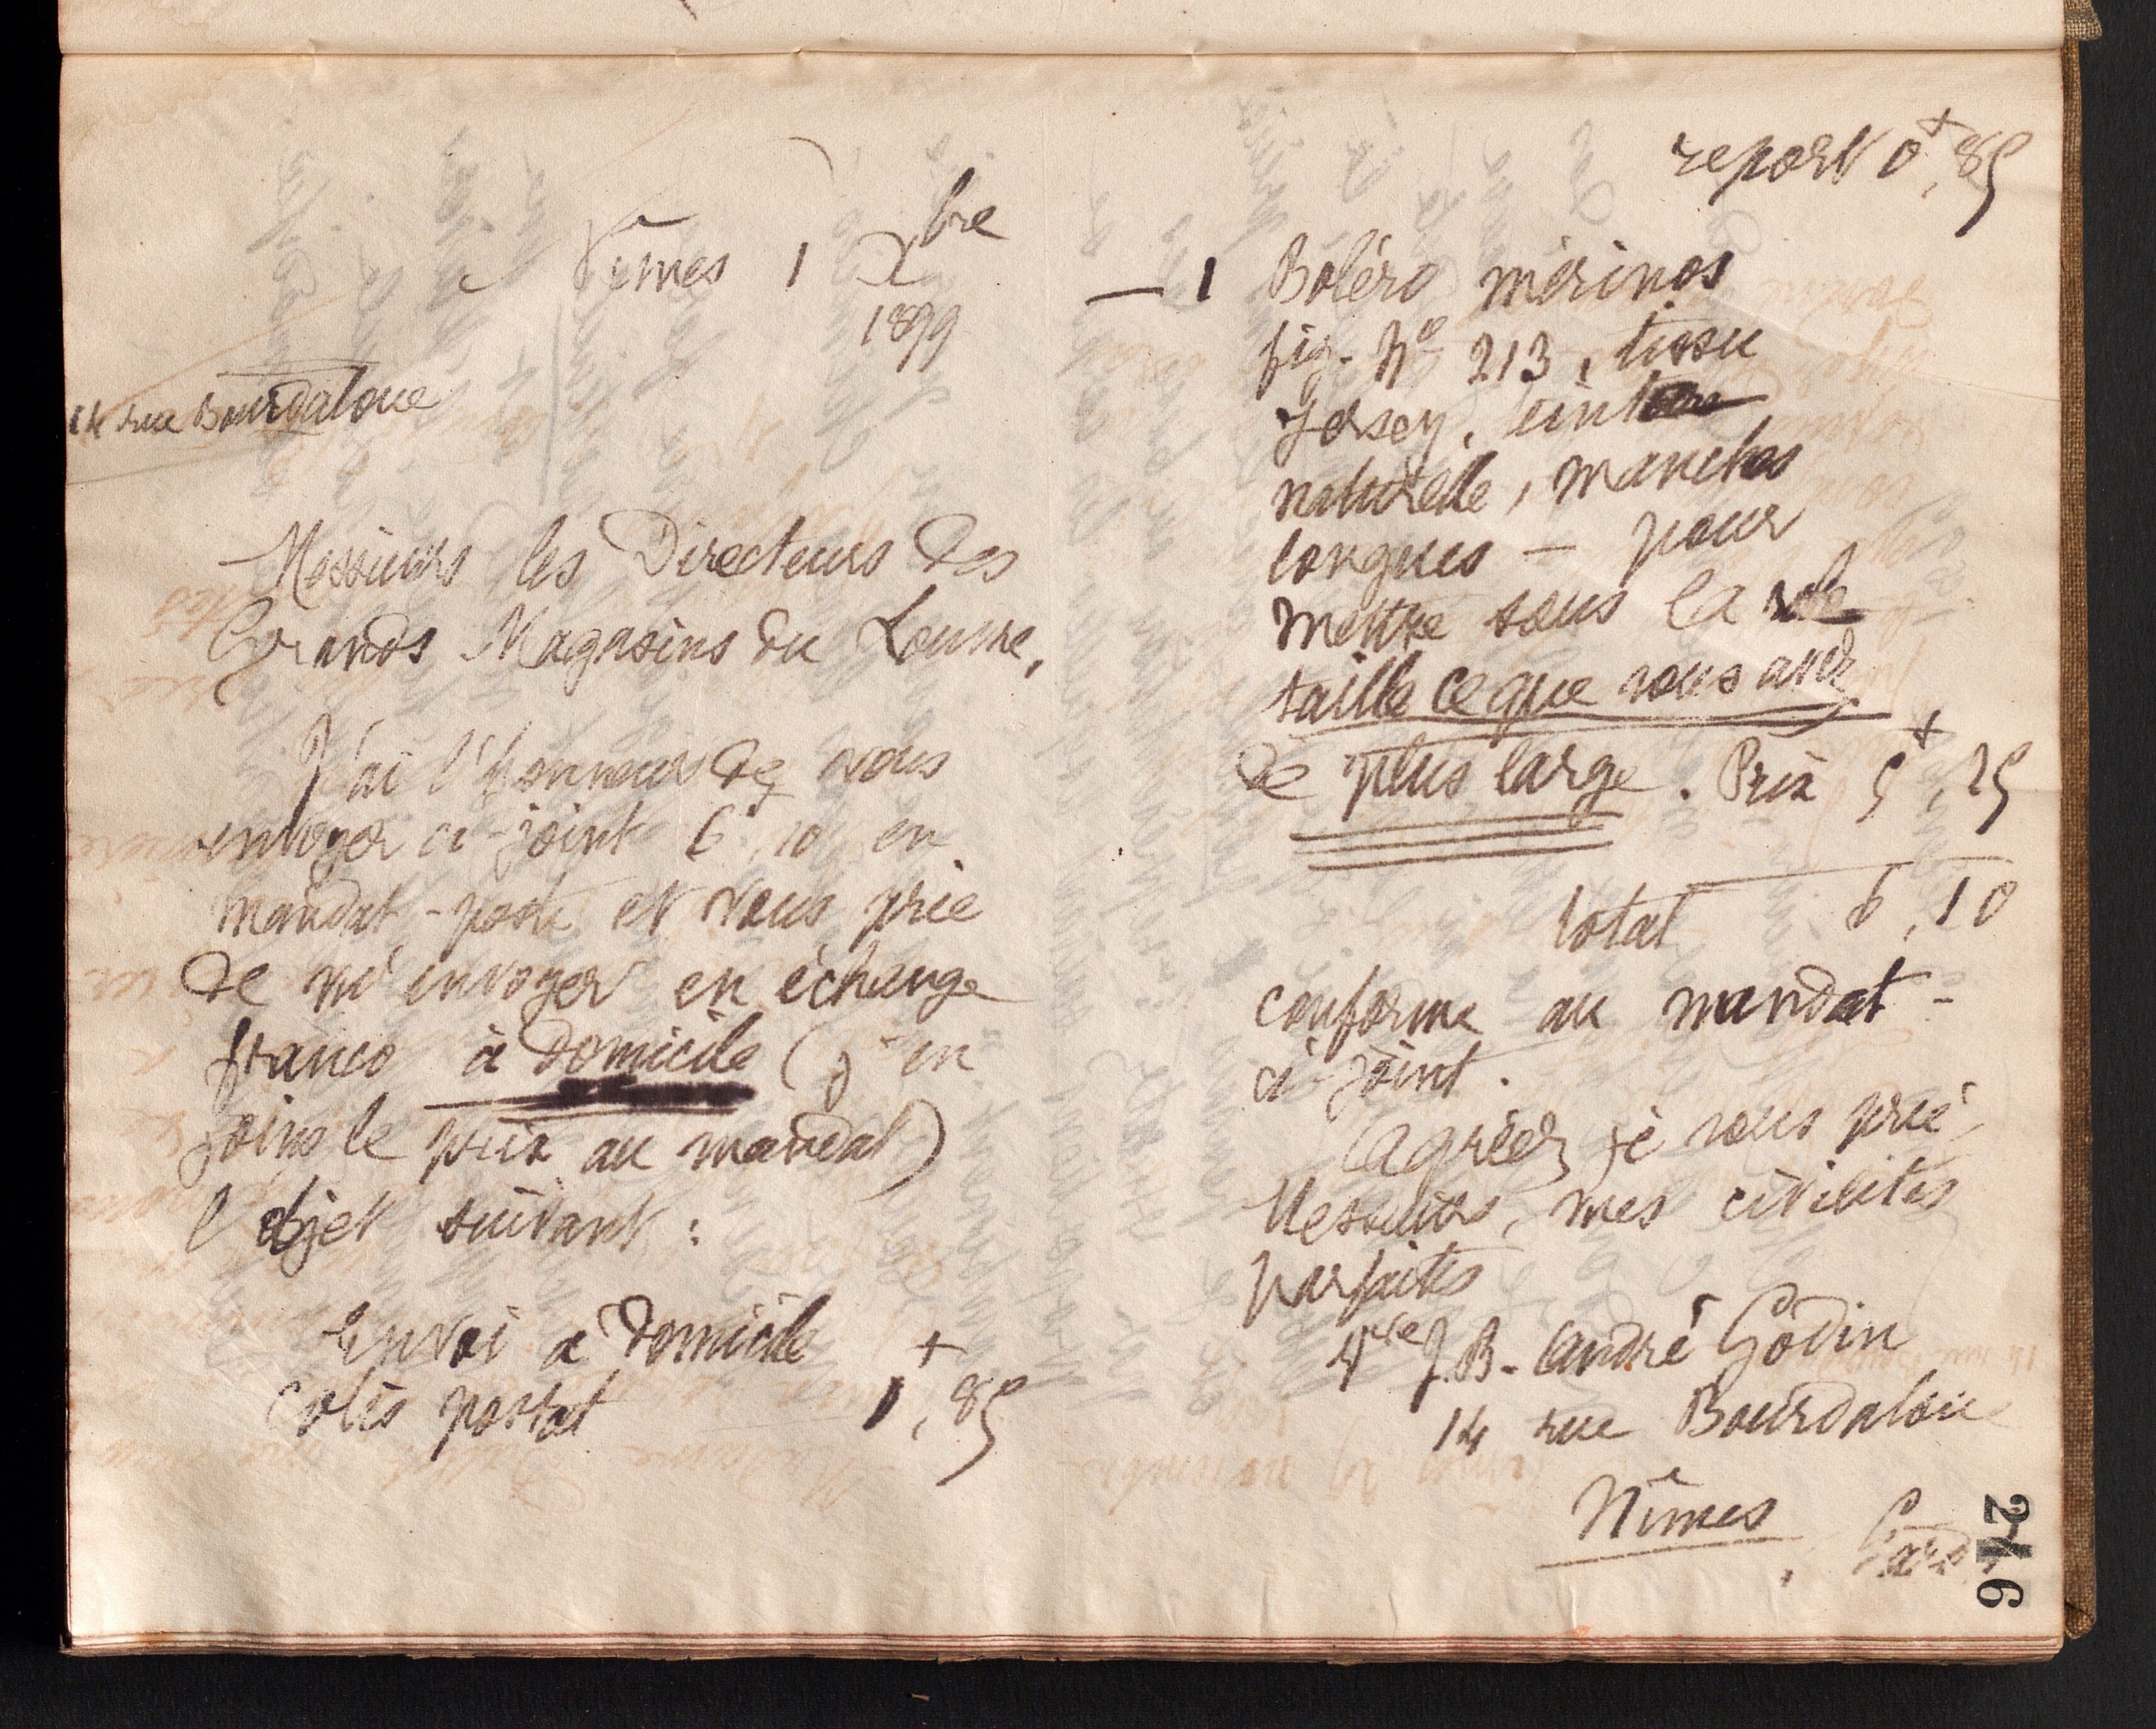 Nîmes 1 Xbre
1899
14 rue Bourdaloue
Messieurs les Directeurs des
Grands Magasins du Louvre,
J'ai l'honneur de vous
envoyer ci-joint 6f,10 en
mandat-poste et vous prie
de m'envoyer en échange
franco à domicile (j'en
joins le prix au mandat)
l'objet suivant :
Envoi à domicile
colis postal 0f,85
report 0f,85
— 1 Boléro mérinos
fig. No 213, tissu
Jersey, teinte
naturelle, manches
longues — pour
mettre sous la robe
taille ce que vous avez
de plus large. Prix 5f,25
total 6,10
conforme au mandat-
ci-joint.
Agréez, je vous prie,
Messieurs, mes civilités
parfaites
Vve J.B. André Godin
14 rue Bourdaloue
Nîmes, Gard
246